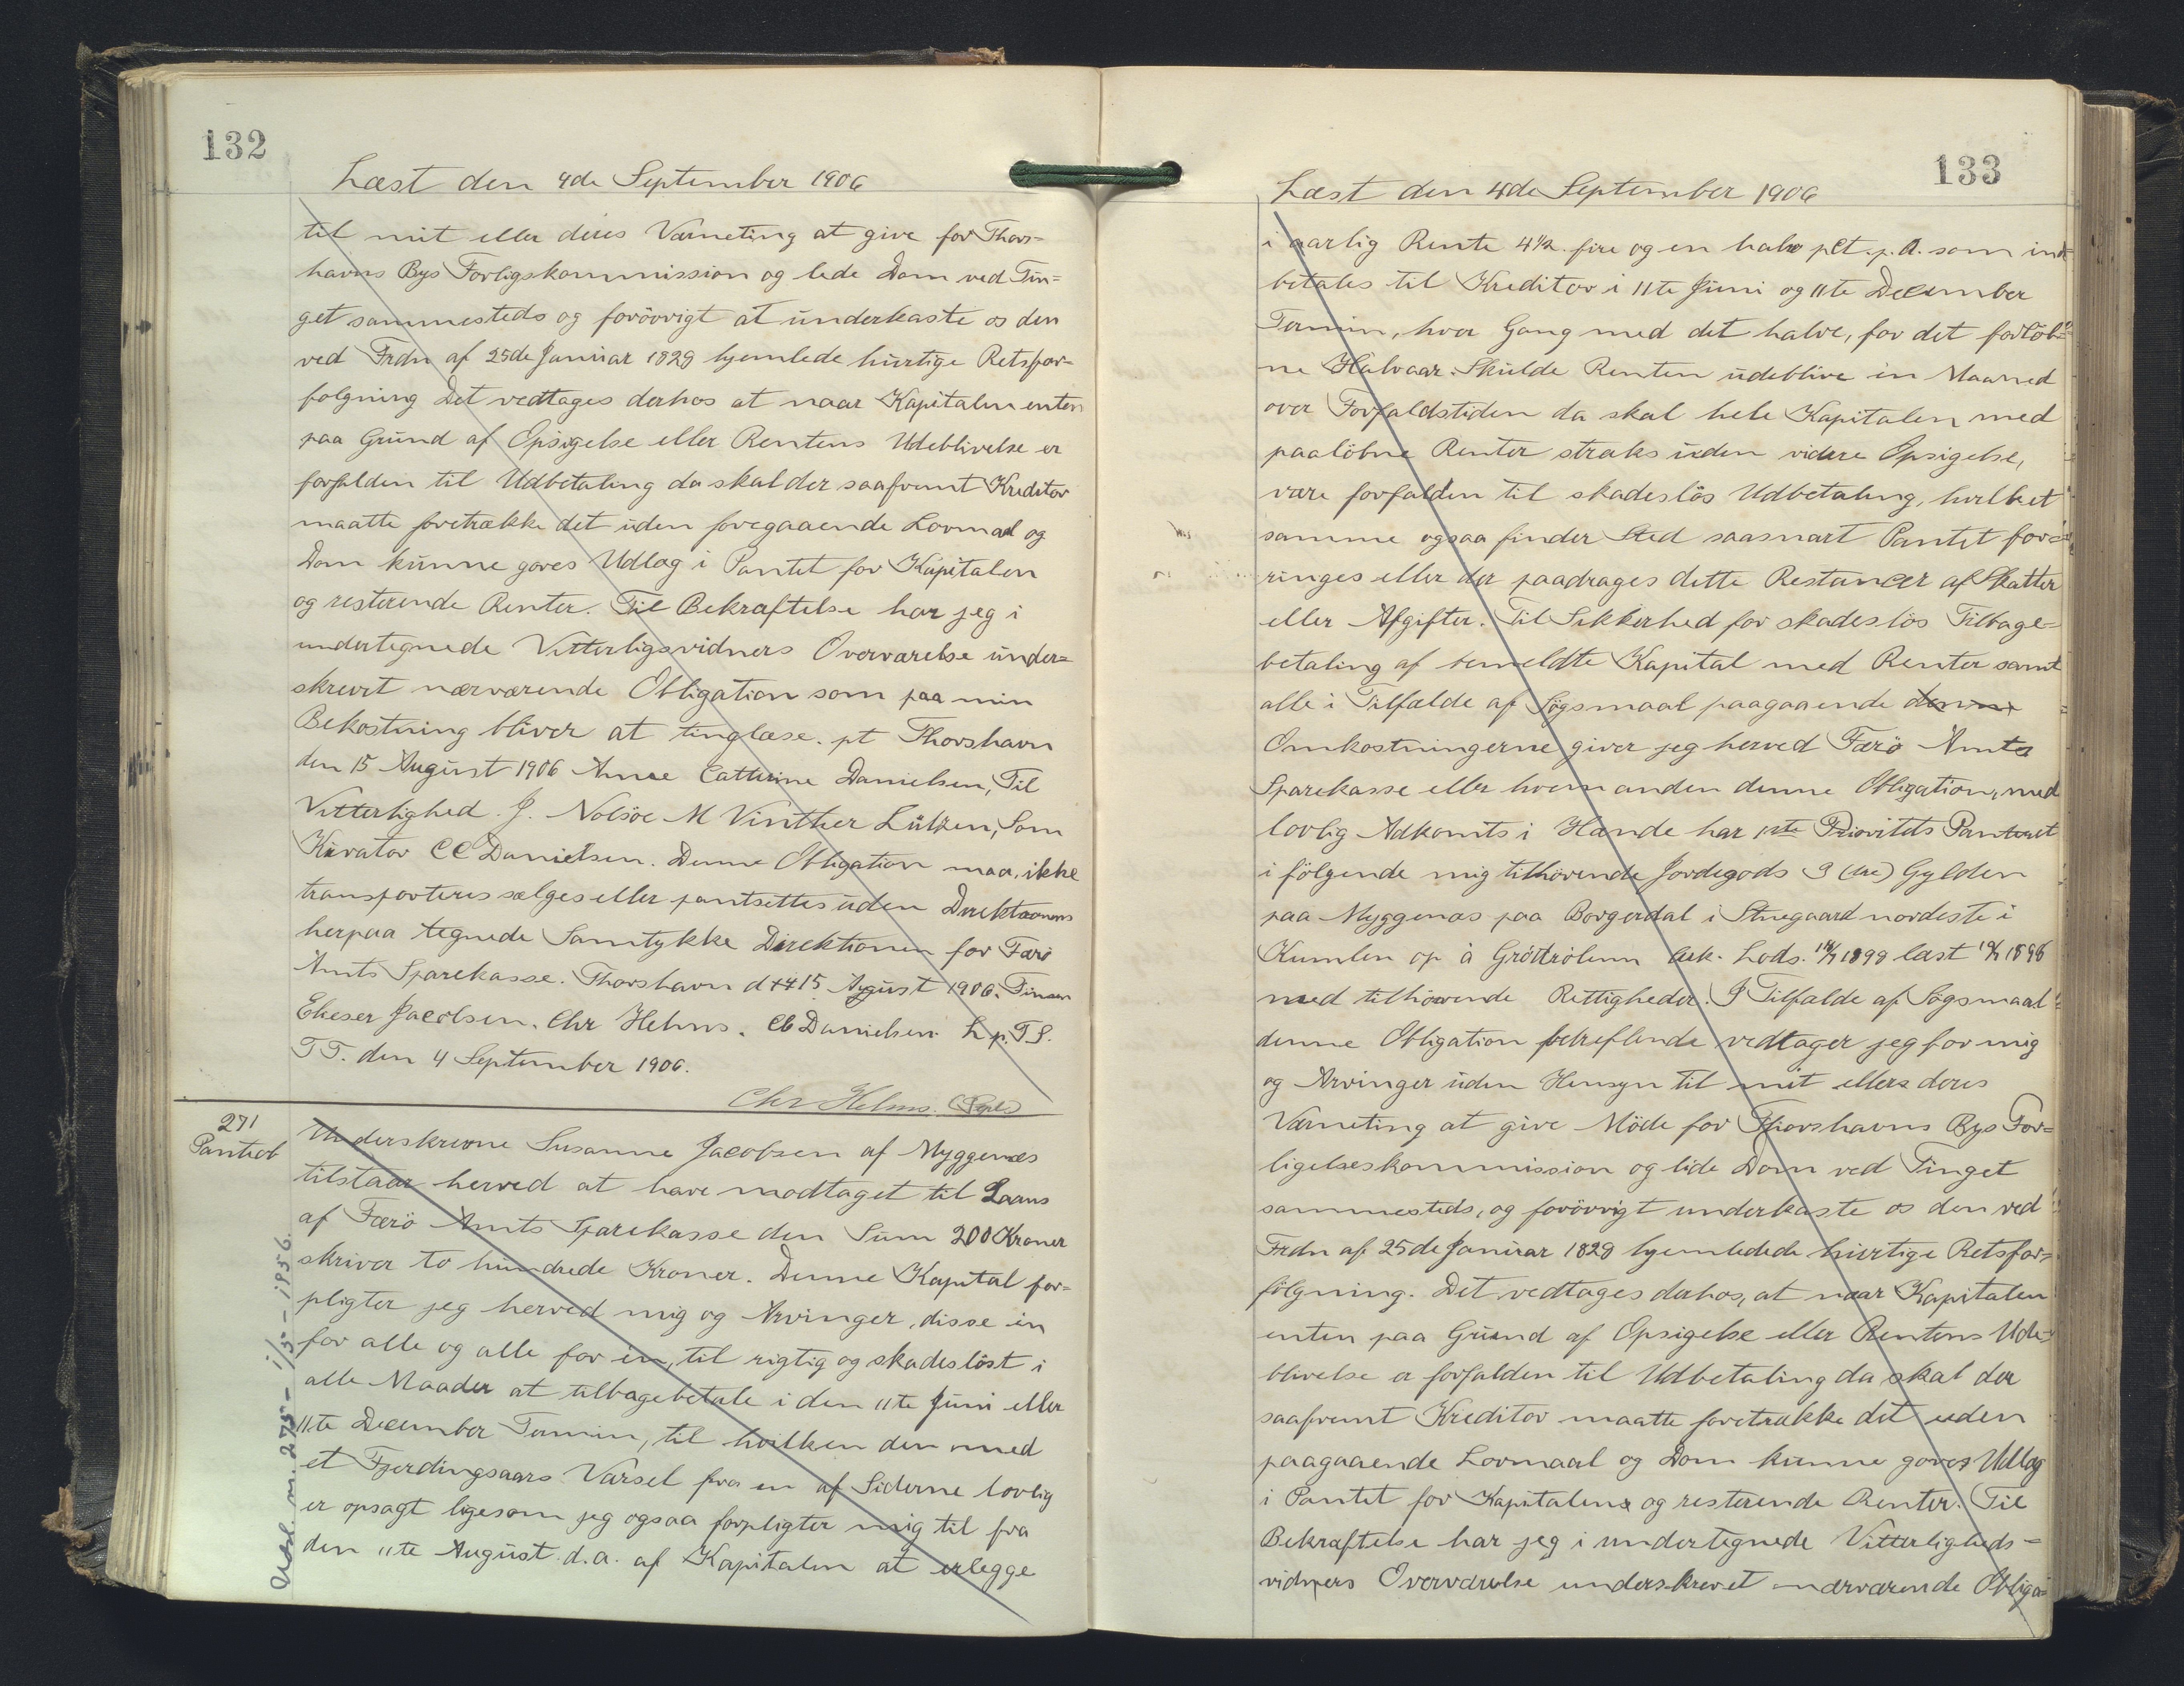 132
Læst den 4de September 1906
til mit eller deres Værneting at give for Thors=
havns Bys Forligskommission og lede Dom ved Tin=
get sammesteds og forövrigt at underkaste os den
ved Frdn af 25de Januar 1828 hjemlede hurtige Retsfor=
følgning Det vedtages derhos at naar Kapitalen enten
paa Grund af Opsigelse eller Rentens Udeblivelse er
forfalden til Udbetaling da skal der saafremt Kreditor
maatte foretrække det uden foregaaende Lovmaal og
Dom kunne gøres Udlæg i Pantet for Kapitalen
og resterende Renter. Til Bekræftelse har jeg i
undertegnede Vitterligsvidners Overværelse under=
skrevet nærværende Obligation som paa min
Bekostning bliver at tinglæse. pt Thorshavn
den 15 August 1906 Anne Cathrine Danielsen, Til
Vitterlighed. J. Nolsöe M Vinther Lützen, Som
Kurator CC Danielsen. Denne Obligation maa, ikke
transporteres sælges eller pantsættes uden Direktionens
herpaa tegnede Samtykke Direktionen for Færö
Amts Sparekasse. Thorshavn d 15 August 1906. Finsen
Elieser Jacobsen. Chr Helms. CC Danielsen L p. T S.
T T. den 4 September 1906.
Chr Helms.
271
Pantiob
Underskrevne Susanne Jacobsen af Myggenæs
tilstaar herved at have modtaget til Laans
af Færö Amts Sparekasse den Sum 200 Kroner
skriver to hundrede Kroner. Denne Kapital for=
pligter jeg herved mig og Arvinger, disse en
for alle og alle for en, til rigtig og skadesløst i
alle Maader at tilbagebetale i den 11te Juni eller
11te December Termin, til hvilken den med
et Fjerdingsaars Varsel fra en af Siderne lovlig
er opsagt ligesom jeg ogsaa forpligter mig til fra
den 11te August d.a. af Kapitalen at erlegge
Udsl. m. 275 - 1/5 - 1956.
133
Læst den 4de September 1906
i aarlig Rente 4½ fire og en halv pCt. p. A. som ind=
betales til Kreditor i 11te Juni og 11te December
Termin, hver Gang med det halve, for det forlöb=
ne Halvaar. Skulde Renten udeblive en Maaned
over Forfaldstiden da skal hele Kapitalen med
paalöbne Renter straks uden videre Opsigelse,
være forfalden til skadeslös Udbetaling, hvilket
samme ogsaa finder Sted saasnart Pantet for=
ringes eller der paadrages dette Restancer af Skatter
eller Afgifter. Til Sikkerhed for skadeslös Tilbage=
betaling af bemeldte Kapital med Renter samt
alle i Tilfælde af Søgsmaal paagaaende denne
Omkostningerne giver jeg herved Færö Amts
Sparekasse eller hvem anden denne Obligation, med
lovlig Adkomts i Hænde har 1ste Prioritets Panteret
i fölgende mig tilhörende Jordegods 3 (tre) Gylden
paa Myggenæs paa Borgerdal i Stuegaard nordeste i
Kumlen op à Grötrölum Aek. Lods. 1898 læst 1898
med tilhörende Rettigheder. I Tilfælde af Søgsmaal
denne Obligation betreffende vedtager jeg for mig
og Arvinger uden Hensyn til mit ellers deres
Værneting at give Möde for Thorshavns Bys For=
ligelseskommission og lide Dom ved Tinget
sammesteds, og forövrigt underkaste os den ved
Frdn af 25de Januar 1828 hjemledede hurtige Retsfor=
fölgning. Det vedtages derhos, at naar Kapitalen
enten paa Grund af Opsigelse eller Rentens Ude=
blivelse er forfalden til Udbetaling da skal der
saafremt Kreditor maatte foretrække det uden
paagaaende Lovmaal og Dom kunne gøres Udlæg
i Pantet for Kapitalens og resterende Renter. Til
Bekræftelse har jeg i undertegnede Vitterligheds=
vidners Overværelse underskrevet nærværende Obliga=